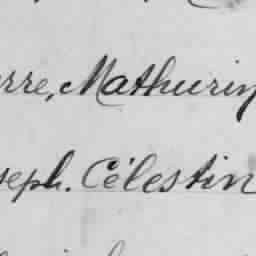 rre, Mathurin
seph. Célestin